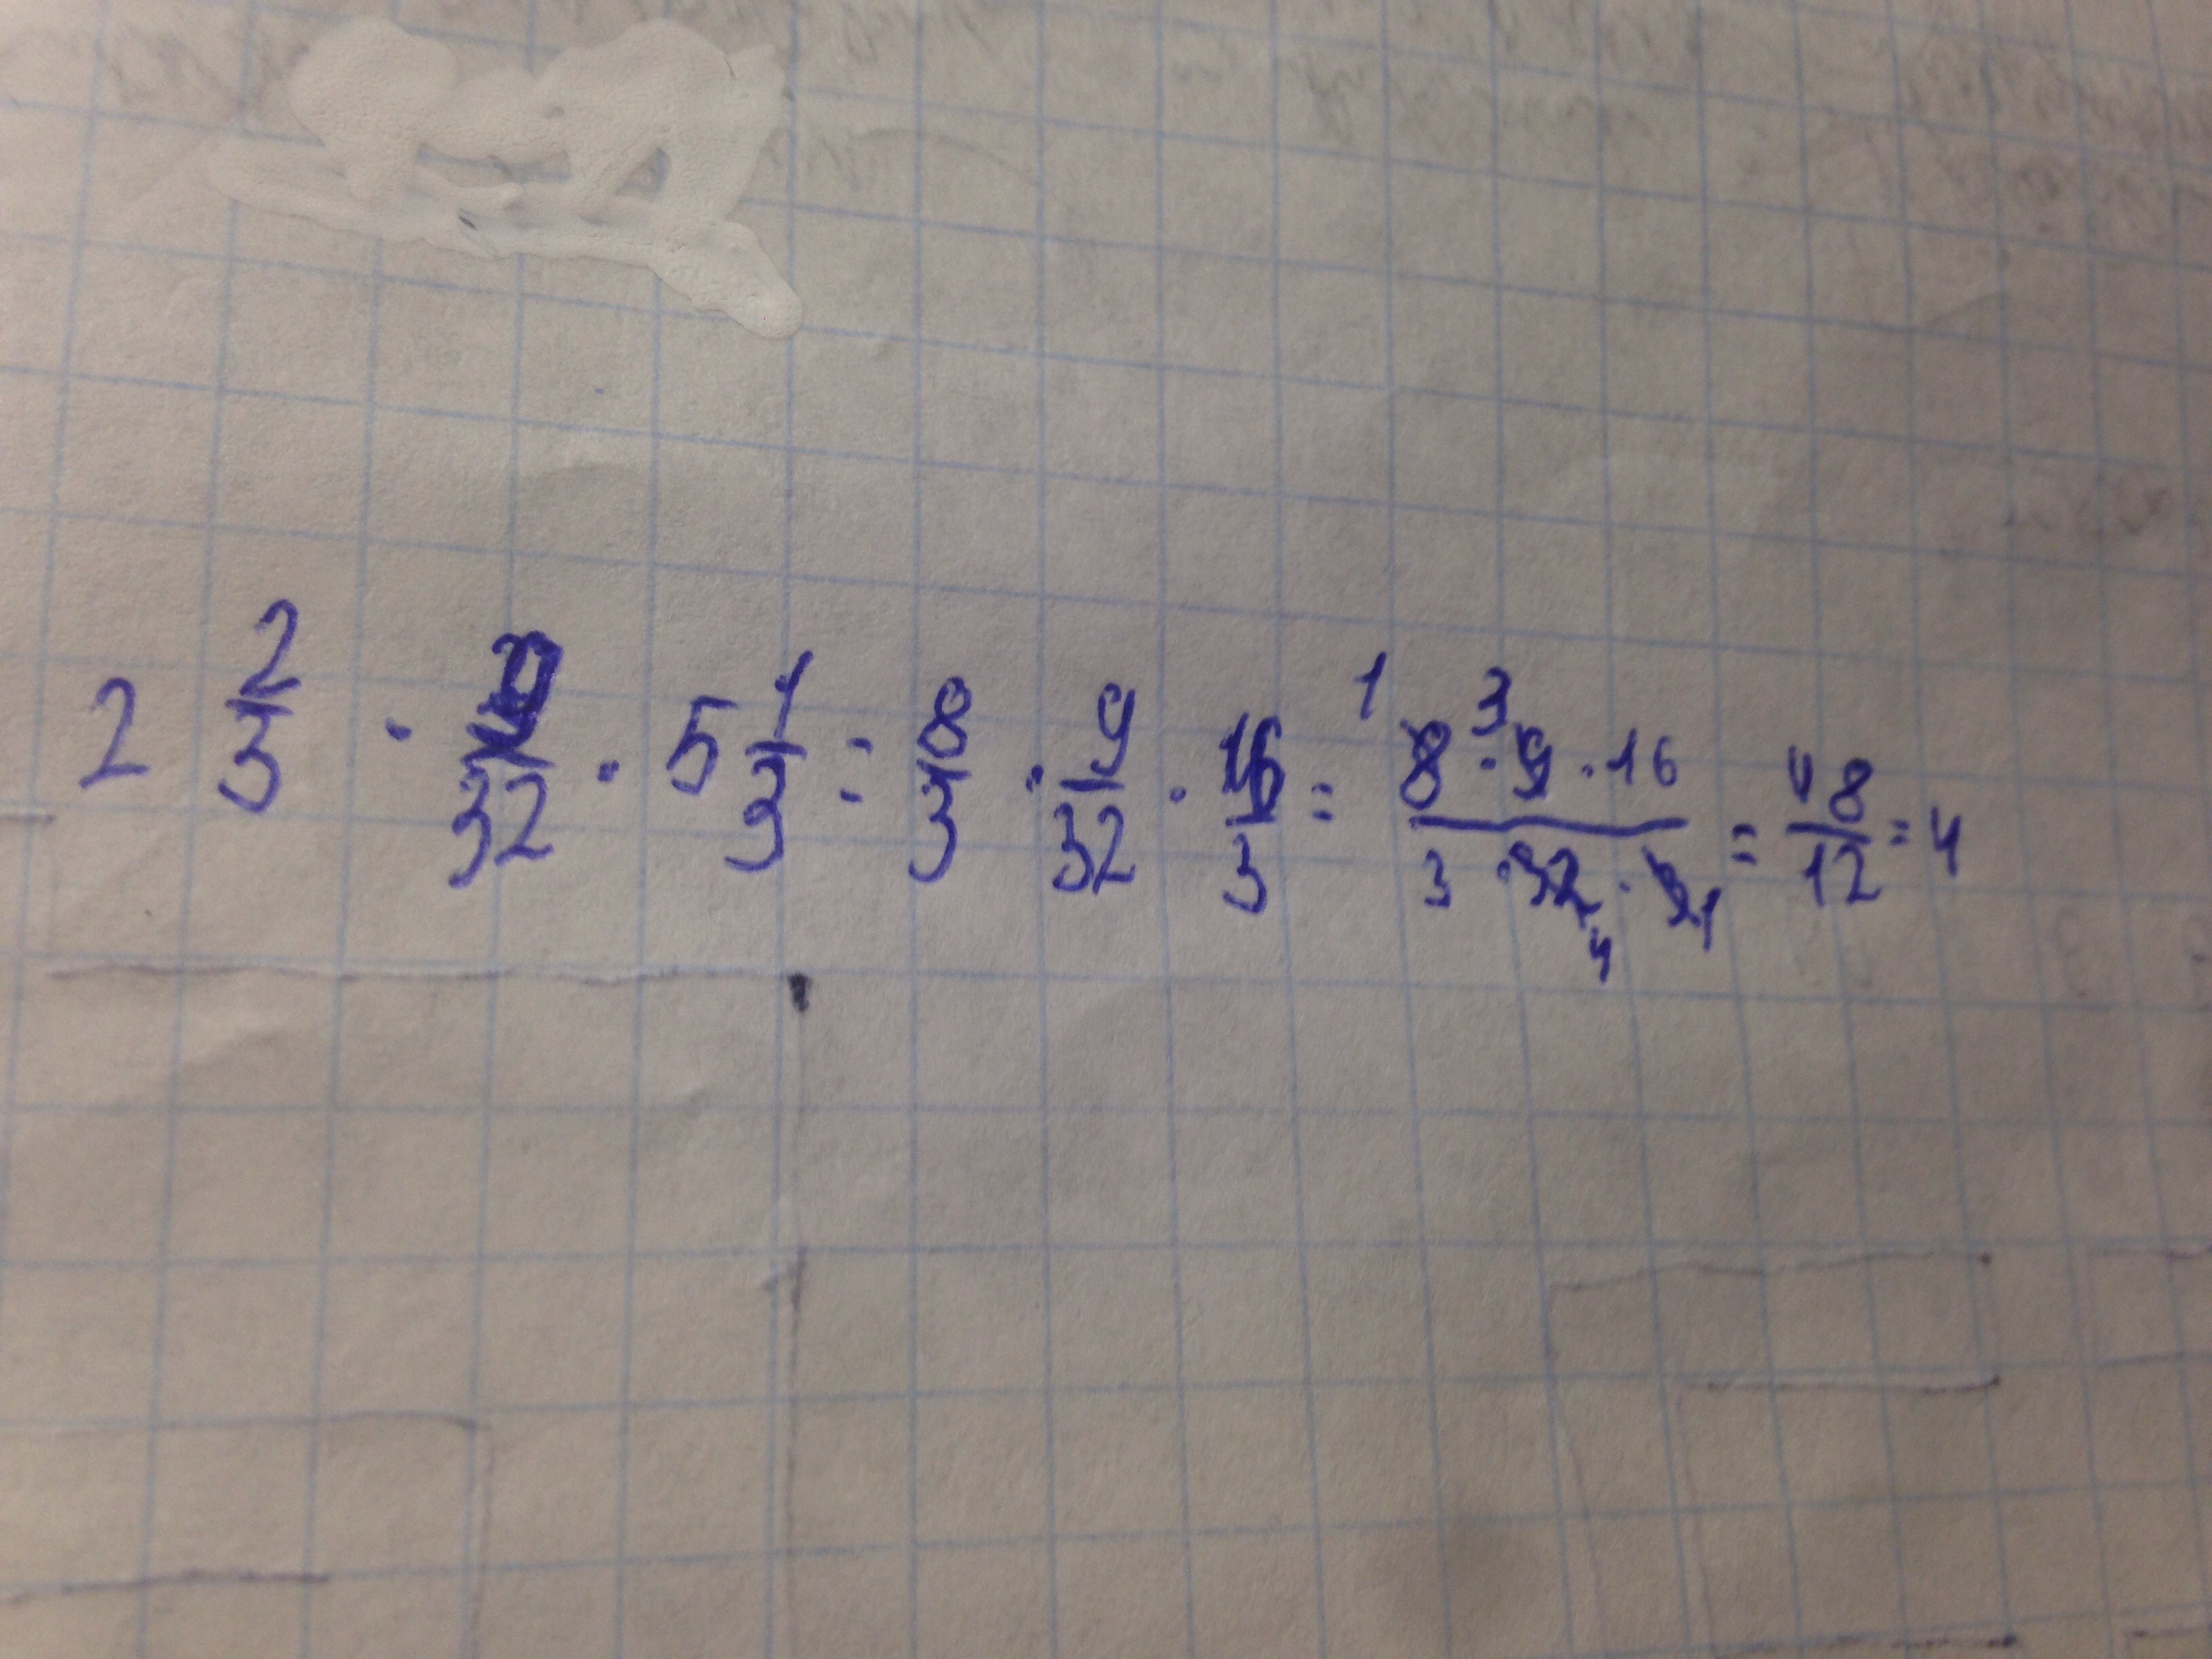 2 2/3 · 9/32 · 5 1/3 = 8/3 · 9/32 · 16/3 = 1 8 · 3 9 · 16 / 3 · 32 4 · 3 1 = 48/12 = 4